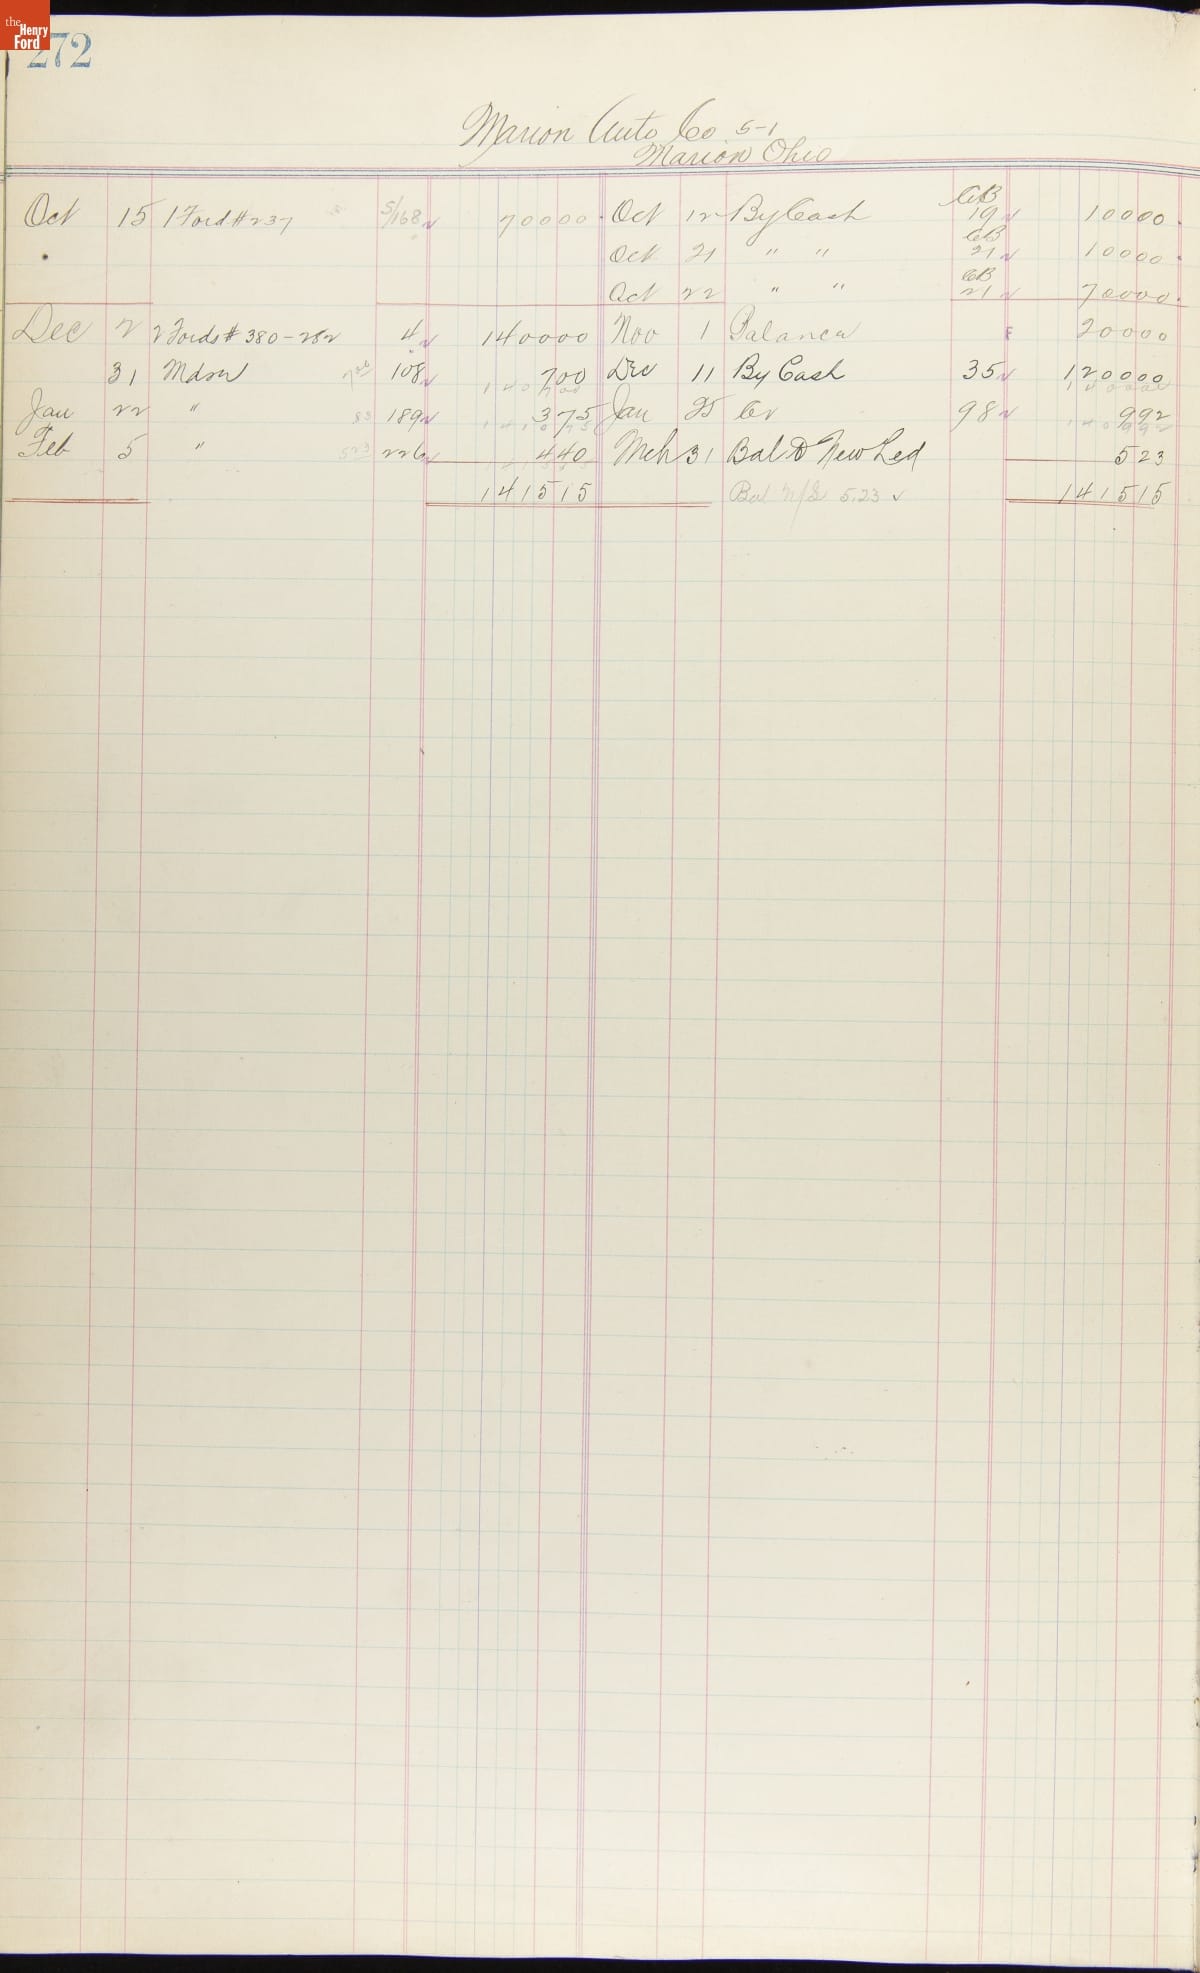 the Henry Ford
272
Marion Auto Co 5-1
Marion Ohio
Oct 15 1 Ford #237 S/168 70000 Oct 12 By Cash CB 19 10000
Oct 21 " " CB 21 10000
Oct 22 " " CB 21 70000
Dec 2 2 Fords # 380-282 4 140000 Nov 1 Balance 20000
31 Mdse 7 00 108 700 Dec 11 By Cash 35 120000
140700 140000
Jan 22 " 83 189 375 Jan 25 Cr 98 992
141075 140992
Feb 5 " 523 226 440 Mch 31 Bal to New Led 523
141515
141515 Bal N/L 5.23 ✓ 141515